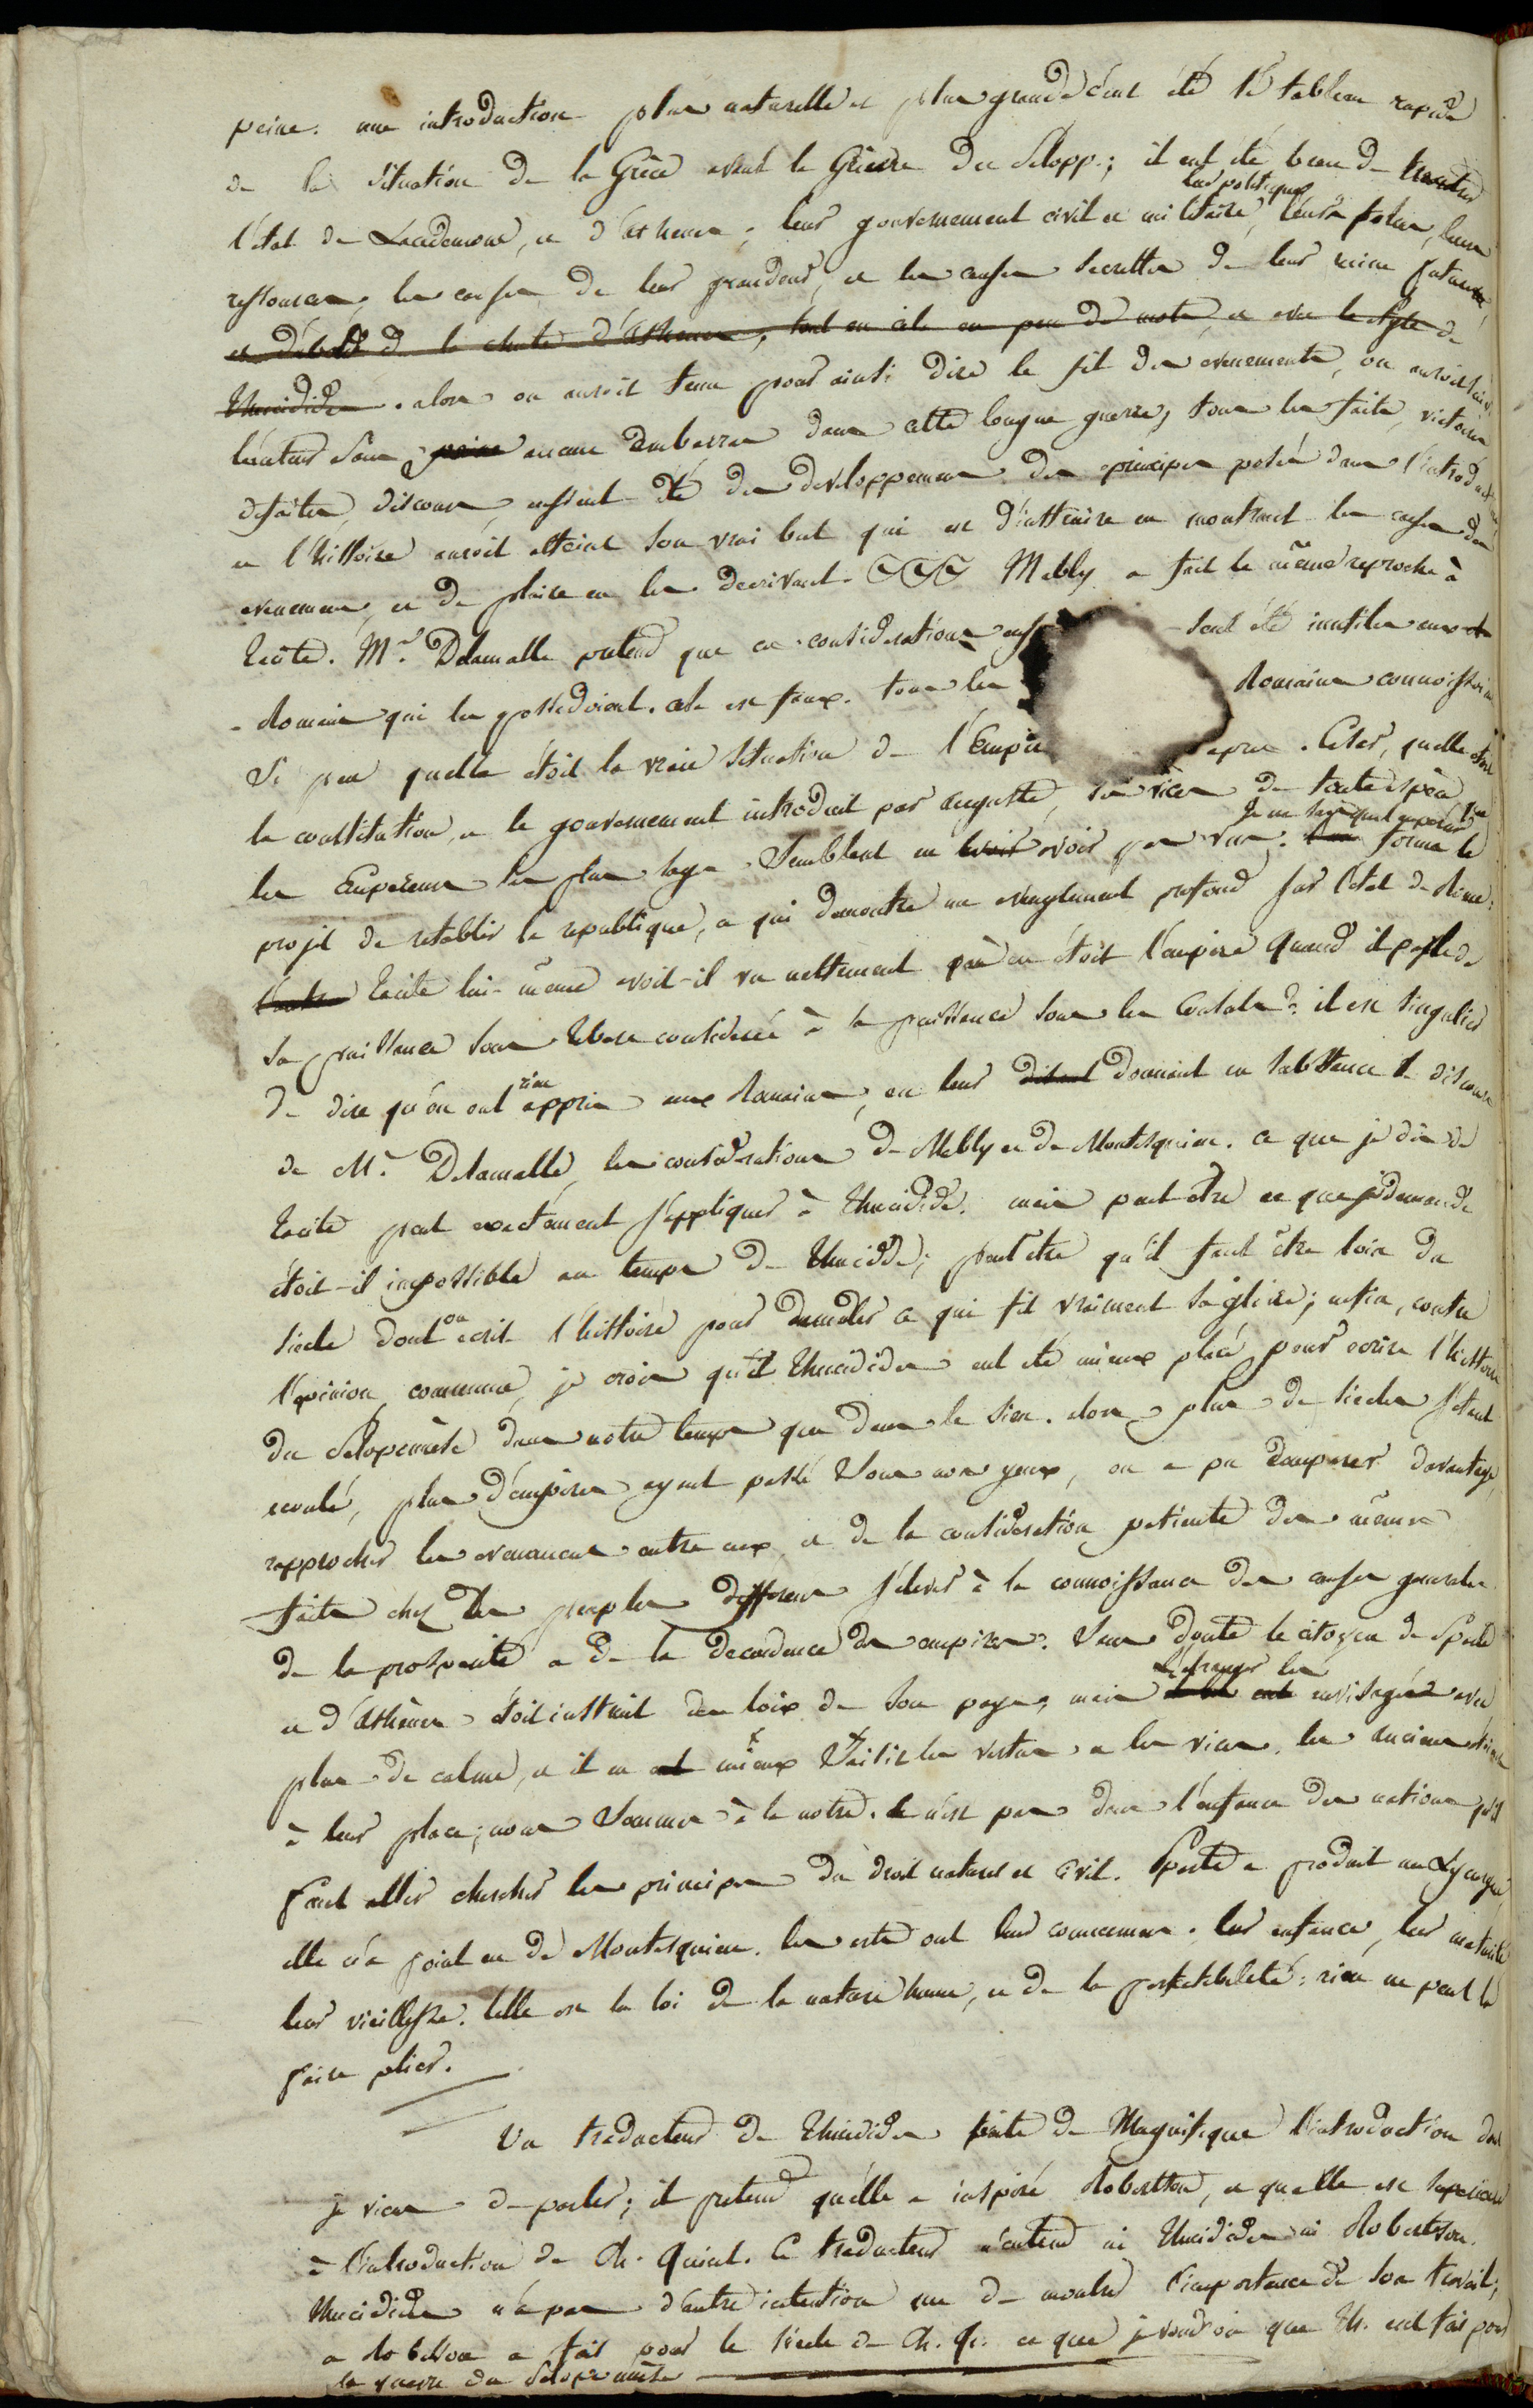 peine. une introduction plus naturelle et plus grande c'eut été le tableau rapide
de la situation de la Grèce avant la Guerre du Pelopp.; il eut été beau de montrer
l'état de Lacédemone, et d'athenes; leur gouvernement civil et militaire, leur politique, leurs, leurs
ressources, les causes de leur grandeur, et les causes secrettes de leur ruine future,
et d'abord de la chute d'Athenes, tout en cela en peu de mots, et avec le style de
Thucidides. alors on auroit tenu pour ainsi dire le fil des evenements, on auroit suivi
l'auteur sans peine aucun embarras dans cette longue guerre; tous les faits, victoires
defaites, discours, eussent été des developpemens des principes posés dans l'introduction
et l'histoire auroit atteint son vrai but qui est d'instruire en montrant les causes des
evenemens, et de plaire en les decrivant. Mably a fait le même reproche à
Tacite. Mr. Delamalle pretend que ces considerations eussent été inutiles aux
Romains qui les possedoient. cela est faux. tous les Romains connoissoient
si peu quelle étoit la vraie situation de l'Empire après Cesar, quelle étoit
la constitution, et le gouvernement introduit par auguste, vices de toute espèce
les Empereurs les plus sages semblent ne avoir pas vus. Je ne sais quel empereur forma le
projet de retablir la republique, ce qui demontre un aveuglement profond sur l'etat de Rome.
Tacite lui-même avoit-il vu nettement où en étoit l'empire quand il parle de
sa puissance sous Tibere comparée à sa puissance sous les Consuls? il est singulier
de dire qu'on eut rien appris aux Romains, en leur disant donnant en substance le discours
de Mr. Delamalle, les considerations de Mably et de Montesquieu. ce que je dis de
Tacite peut exactement s'appliquer à Thucidide. mais peut être ce que je demande
étoit-il impossible au temps de Thucidide; peut être qu'il faut être loin du
siecle dont on ecrit l'histoire pour demeler ce qui fit vraiment sa gloire; enfin, contre
l'opinion commune, je crois que Thucidides eut été mieux placé pour ecrire l'histoire
du Peloponèse dans notre temps que dans le sien. alors plus de siecles s'etant
ecoulé, plus d'empires ayant passé sous nos yeux, on a pu comparer davantage,
rapprocher les evenemens entre eux, et de la consideration patiente des mêmes
faits chez des peuples differens s'elever à la connoissance des causes generales
de la prosperité et de la decadence des empires. Sans doute le citoyen de Sparte
et d'Athènes étoit instruit des loix de son pays; mais l'étranger les envisagées avec
plus de calme, et il en eut mieux saisir les vertus et les vices. les anciens étoient
à leur place; nous sommes à la notre. ce n'est pas dans l'enfance des nations qu'il
faut aller chercher les principes du droit naturel et civil. Sparte a produit un Lycurgue
elle n'a point eu de Montesquieu. les arts ont leur commencement, leur enfance, leur maturité
leur vieillesse. telle est la loi de la nature hum., et de la perfectibilité: rien ne peut la
faire plier.
Un traducteur de Thucidides traite de Magnifique l'introduction dont
je viens de parler; il pretend qu'elle a inspiré Robertson, et qu'elle est superieure
à l'introduction de Ch. Quint. Ce traducteur n'entend ni Thucidides ni Robertson.
Thucidides n'a pas d'autre intention que de montrer l'importance de son travail,
et Robertson a fait pour le siecle de Ch. Q. ce que je voudrois que Th. eut fait pour
la guerre du Peloponnèse